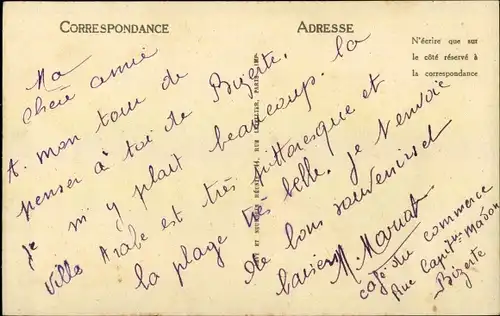 CORRESPONDANCE
ADRESSE
N'écrire que sur
le côté réservé à
la correspondance
Ma
chère amie
A mon tour de
penser à toi de Bizerte.
Je m'y plait beaucoup. la
ville Arabe est très pittoresque et
la plage très belle. Je t'envoie
de bons souvenirs et
baisers
M. 
café du commerce
Rue Capitne Madon
Bizerte